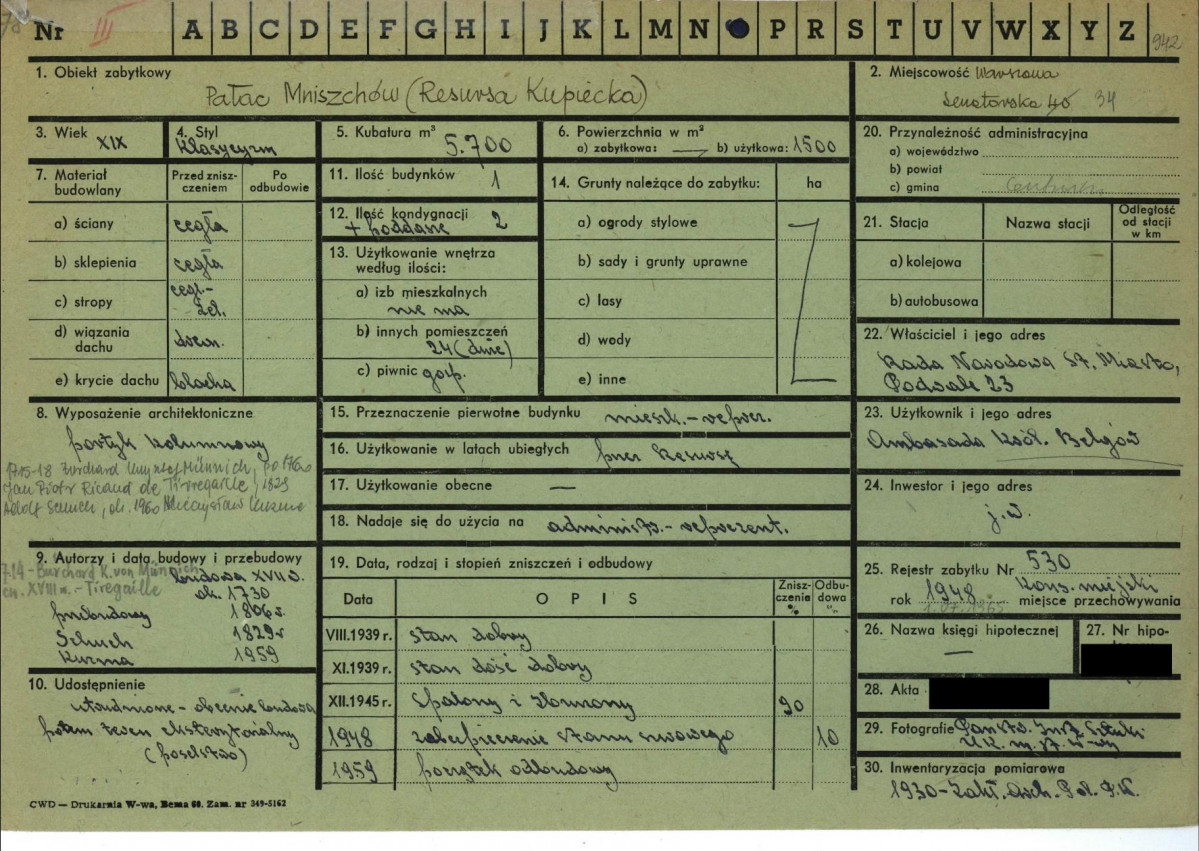 78
Nr III A B C D E F G H I J K L M N P R S T U V W X Y Z 942
1. Obiekt zabytkowy
Pałac Mniszchów (Resursa Kupiecka)
2. Miejscowość Warszawa
Senatorska 40 34
3. Wiek
XIX
4. Styl
klasycyzm
5. Kubatura m³
5.700
6. Powierzchnia w m²
a) zabytkowa: — b) użytkowa: 1500
7. Materiał budowlany
Przed zniszczeniem
Po odbudowie
a) ściany cegła
b) sklepienia cegła
c) stropy cegl.-żel.
d) wiązania dachu drewn.
e) krycie dachu blacha
8. Wyposażenie architektoniczne
portyk kolumnowy
1715-18 Burchard Krzysztof Münnich, po 1760
Jan Piotr Ricaud de Tirregaille, 1829
Adolf Schuch, ok. 1960 Mieczysław Kuzma
9. Autorzy i data budowy i przebudowy
714 - Burchard K. von Münnich
XVIII w. - Tiregaille
budowa XVIII w.
ok. 1730
przebudowy 1806 r.
Schuch 1829 r
Kuzma 1959
10. Udostępnienie
utrudnione - obecnie budowa
potem teren eksterytorialny
(poselstwo)
11. Ilość budynków 1
12. Ilość kondygnacji 2
+ poddasze
13. Użytkowanie wnętrza według ilości:
a) izb mieszkalnych
nie ma
b) innych pomieszczeń
24 (duże)
c) piwnic gosp.
14. Grunty należące do zabytku: ha
a) ogrody stylowe
b) sady i grunty uprawne
c) lasy
d) wody
e) inne
15. Przeznaczenie pierwotne budynku mieszk. - reprez.
16. Użytkowanie w latach ubiegłych przez Resursę
17. Użytkowanie obecne —
18. Nadaje się do użycia na administr. - reprezent.
19. Data, rodzaj i stopień zniszczeń i odbudowy
Data OPIS Zniszczenia % Odbudowa %
VIII.1939 r. stan dobry
XI.1939 r. stan dość dobry
XII.1945 r. Spalony i zburzony 90
1948 zabezpieczenie stanu surowego 10
1959 początek odbudowy
20. Przynależność administracyjna
a) województwo
b) powiat
c) gmina
21. Stacja Nazwa stacji Odległość od stacji w km
a) kolejowa
b) autobusowa
22. Właściciel i jego adres
Rada Narodowa St. Miasto,
Podwale 23
23. Użytkownik i jego adres
Ambasada Król. Belgów
24. Inwestor i jego adres
j.w.
25. Rejestr zabytku Nr 530
rok 1948 Kons. miejski
1.07.1965 miejsce przechowywania
26. Nazwa księgi hipotecznej
—
27. Nr hipo-
28. Akta
29. Fotografie Państw. Inst. Sztuki
U.K. m. st. W-wy
30. Inwentaryzacja pomiarowa
1930 - Zakł. Arch. Pol. P.W.
CWD — Drukarnia W-wa, Bema 60. Zam. nr 349-5162